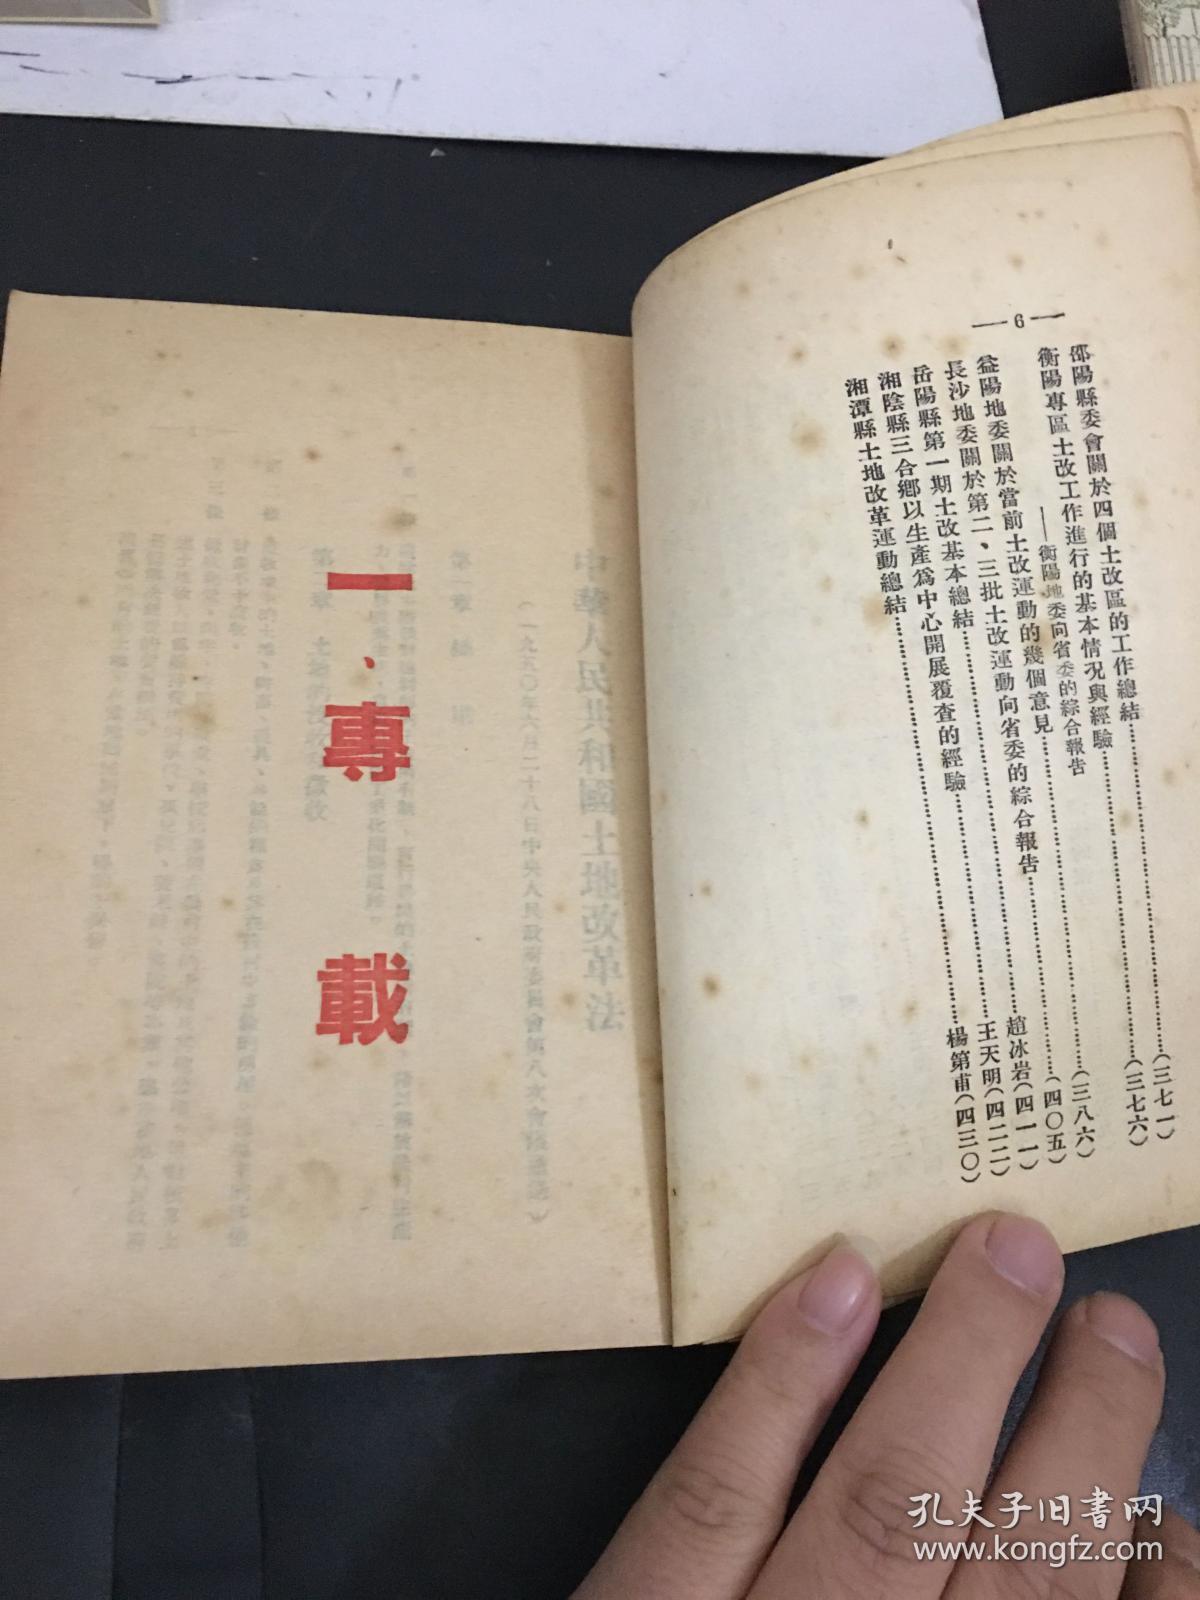 —6—
邵陽縣委會關於四個土改區的工作總結……(三七一)
衡陽專區土改工作進行的基本情況與經驗……(三七六)
——衡陽地委向省委的綜合報告
益陽地委關於當前土改運動的幾個意見……(三八六)
長沙地委關於第二、三批土改運動向省委的綜合報告……(四〇五)
岳陽縣第一期土改基本總結……趙冰岩(四一一)
湘陰縣三合鄉以生產爲中心開展覆查的經驗……王天明(四二二)
湘潭縣土地改革運動總結……楊第甫(四三〇)
一、專載
中華人民共和國土地改革法
(一九五〇年六月二十八日中央人民政府委員會第八次會議通過)
孔夫子旧书网
www.kongfz.com